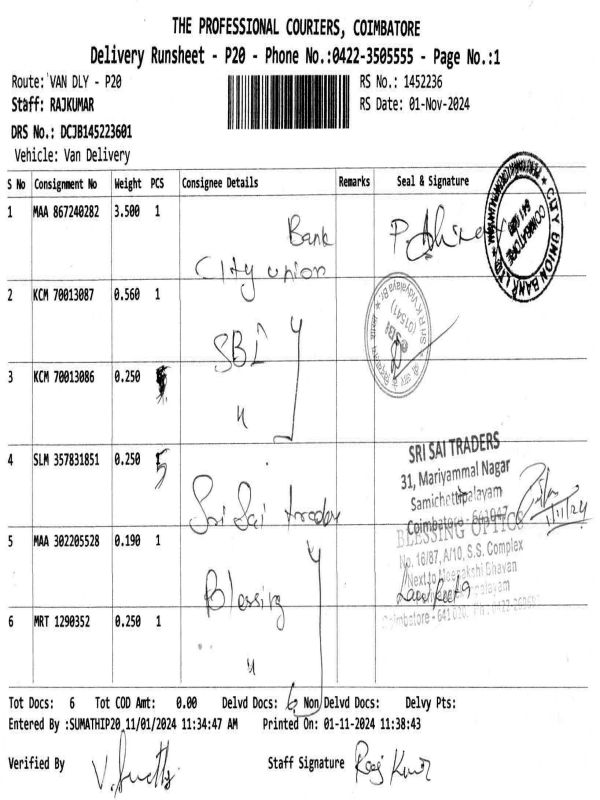 THE PROFESSIONAL COURIERS, COIMBATORE
Delivery Runsheet - P20 - Phone No.:0422-3505555 - Page No.:1
Route: VAN DLY - P20
RS No.: 1452236
Staff: RAJKUMAR
RS Date: 01-Nov-2024
DRS No.: DCJB145223601
Vehicle: Van Delivery
S No Consignment No Weight PCS Consignee Details Remarks Seal & Signature
1 MAA 867240282 3.500 1
Bank
City union
CITY UNION BANK LTD
COIMBATORE
2 KCM 70013087 0.560 1
SBI
Sri S R K V Vidyalaya Br.
(01541)
SBI
3 KCM 70013086 0.250
"
4 SLM 357831851 0.250
Sri Sai
SRI SAI TRADERS
31, Mariyammal Nagar
Samichettipalayam
Coimbatore - 641047
1/11/24
5 MAA 302205528 0.190 1
Blessing
BLESSING OPTICS
No. 16/87, A/10, S.S. Complex
Next to Meenakshi Bhavan
Coimbatore - 641 020.
6 MRT 1290352 0.250 1
"
Tot Docs: 6 Tot COD Amt: 0.00 Delvd Docs: 6 Non Delvd Docs: Delvy Pts:
Entered By :SUMATHIP20 11/01/2024 11:34:47 AM Printed On: 01-11-2024 11:38:43
Verified By
Staff Signature Raj Kumar